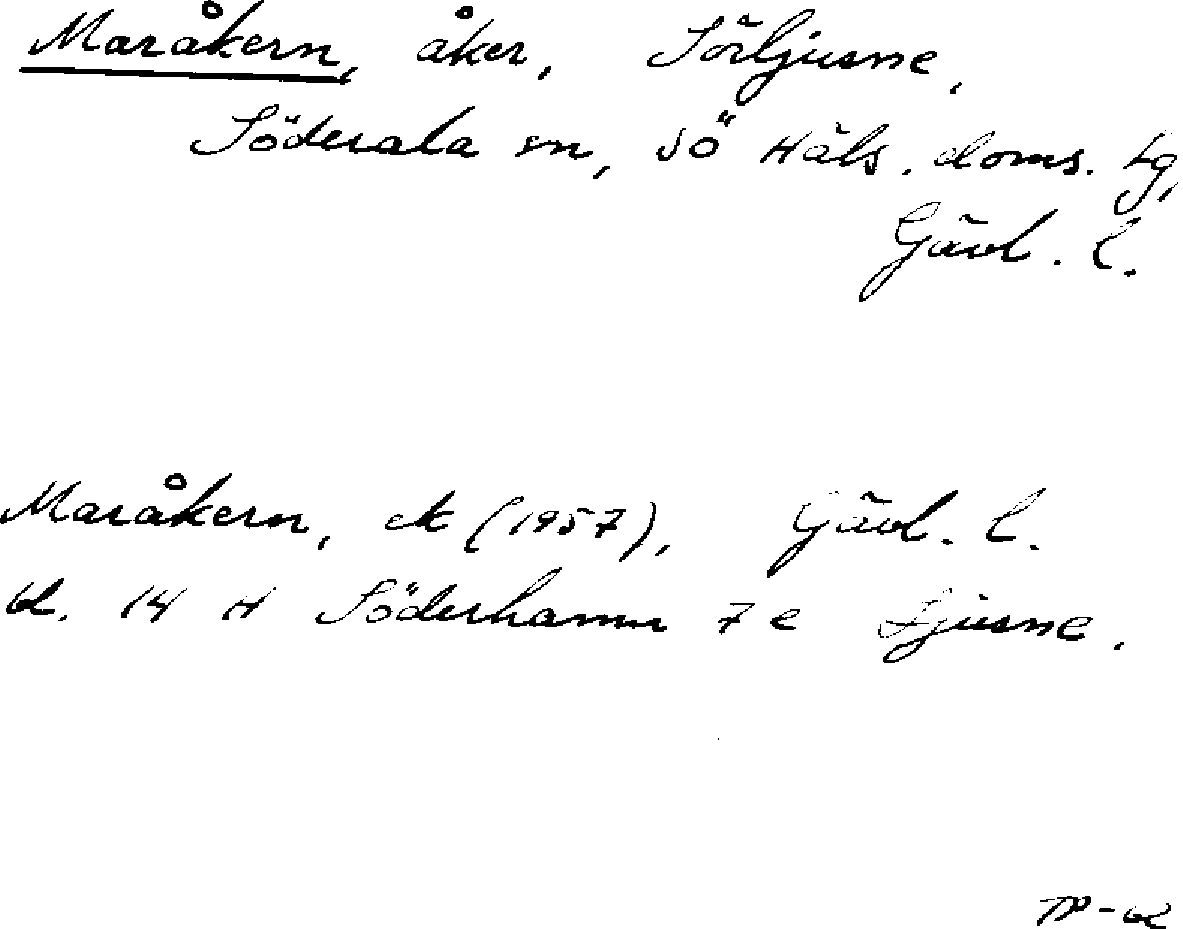 Maråkern, åker, Sörljusne,
Söderala sn, Sö Häls. doms. tg,
Gävl. l.
Maråkern, ek (1957), Gävl. l.
bl. 14 H Söderhamn 7 e Ljusne.